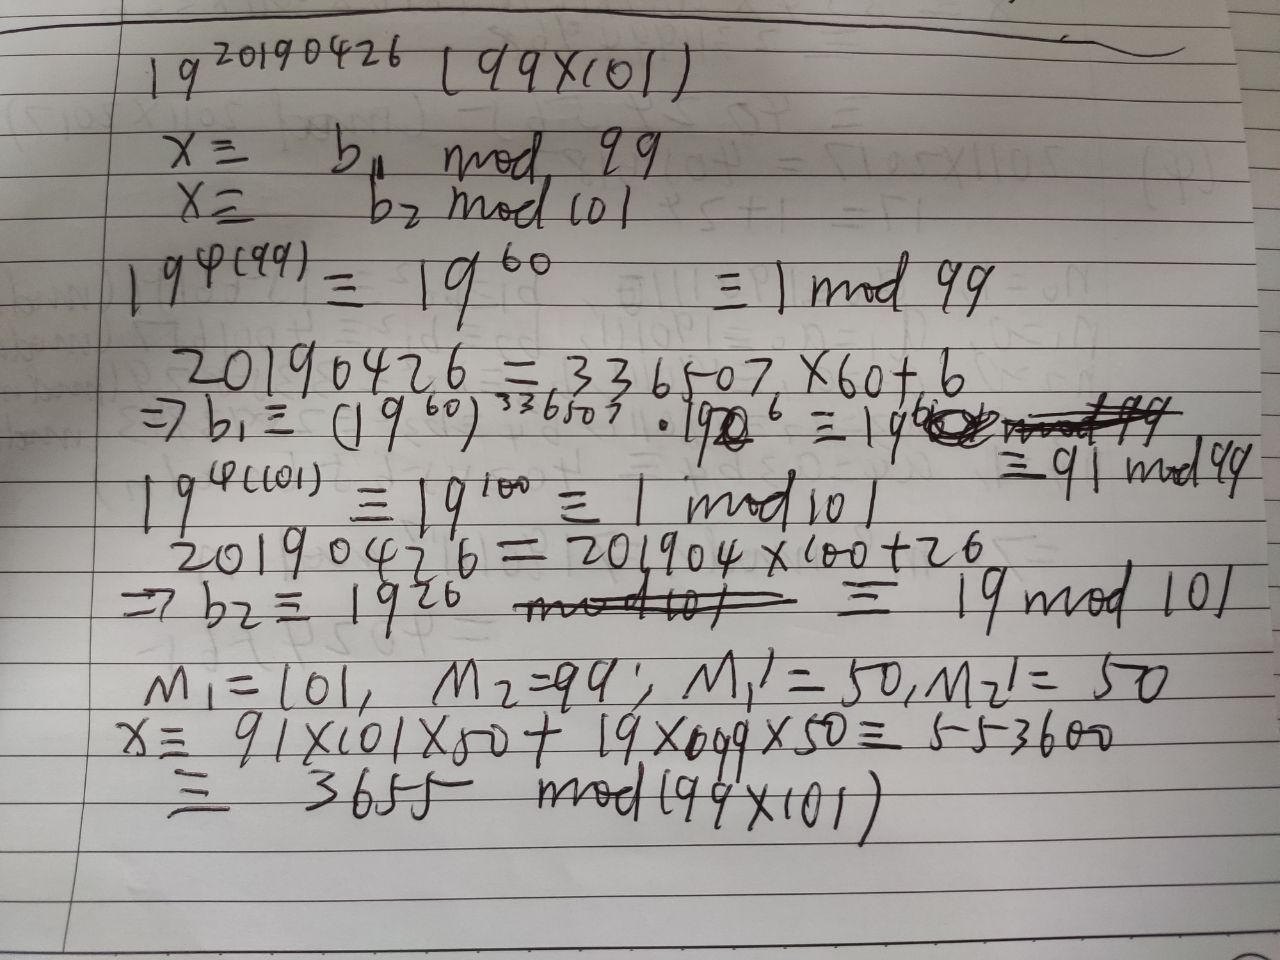 19^20190426 (99×101)
x ≡ b1 mod 99
x ≡ b2 mod 101
19^φ(99) ≡ 19^60 ≡ 1 mod 99
20190426 = 336507 × 60 + 6
⇒ b1 ≡ (19^60)^336507 · 19^6 ≡ 19^6
≡ 91 mod 99
19^φ(101) ≡ 19^100 ≡ 1 mod 101
20190426 = 201904 × 100 + 26
⇒ b2 ≡ 19^26 ≡ 19 mod 101
M1 = 101, M2 = 99; M1' = 50, M2' = 50
x ≡ 91×101×50 + 19×99×50 ≡ 553600
≡ 3655 mod (99×101)